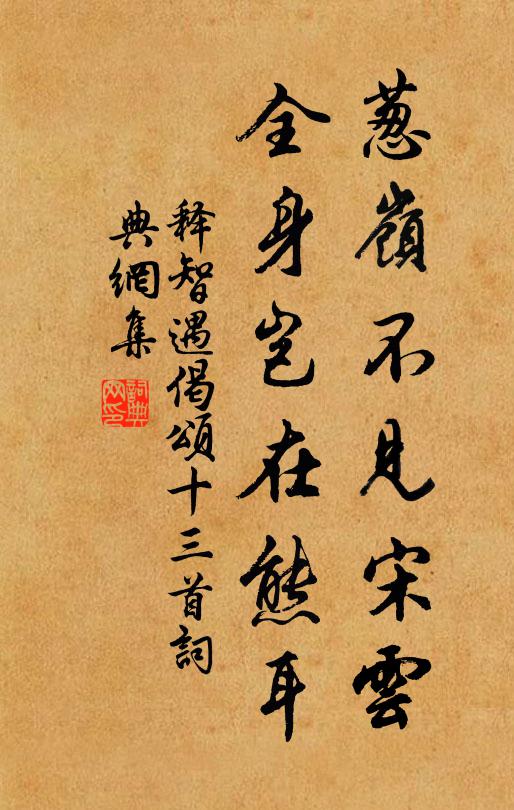 葱嶺不見宋雲
全身岂在熊耳
释智遇偈頌十三首詞
典網集
詞典
网印